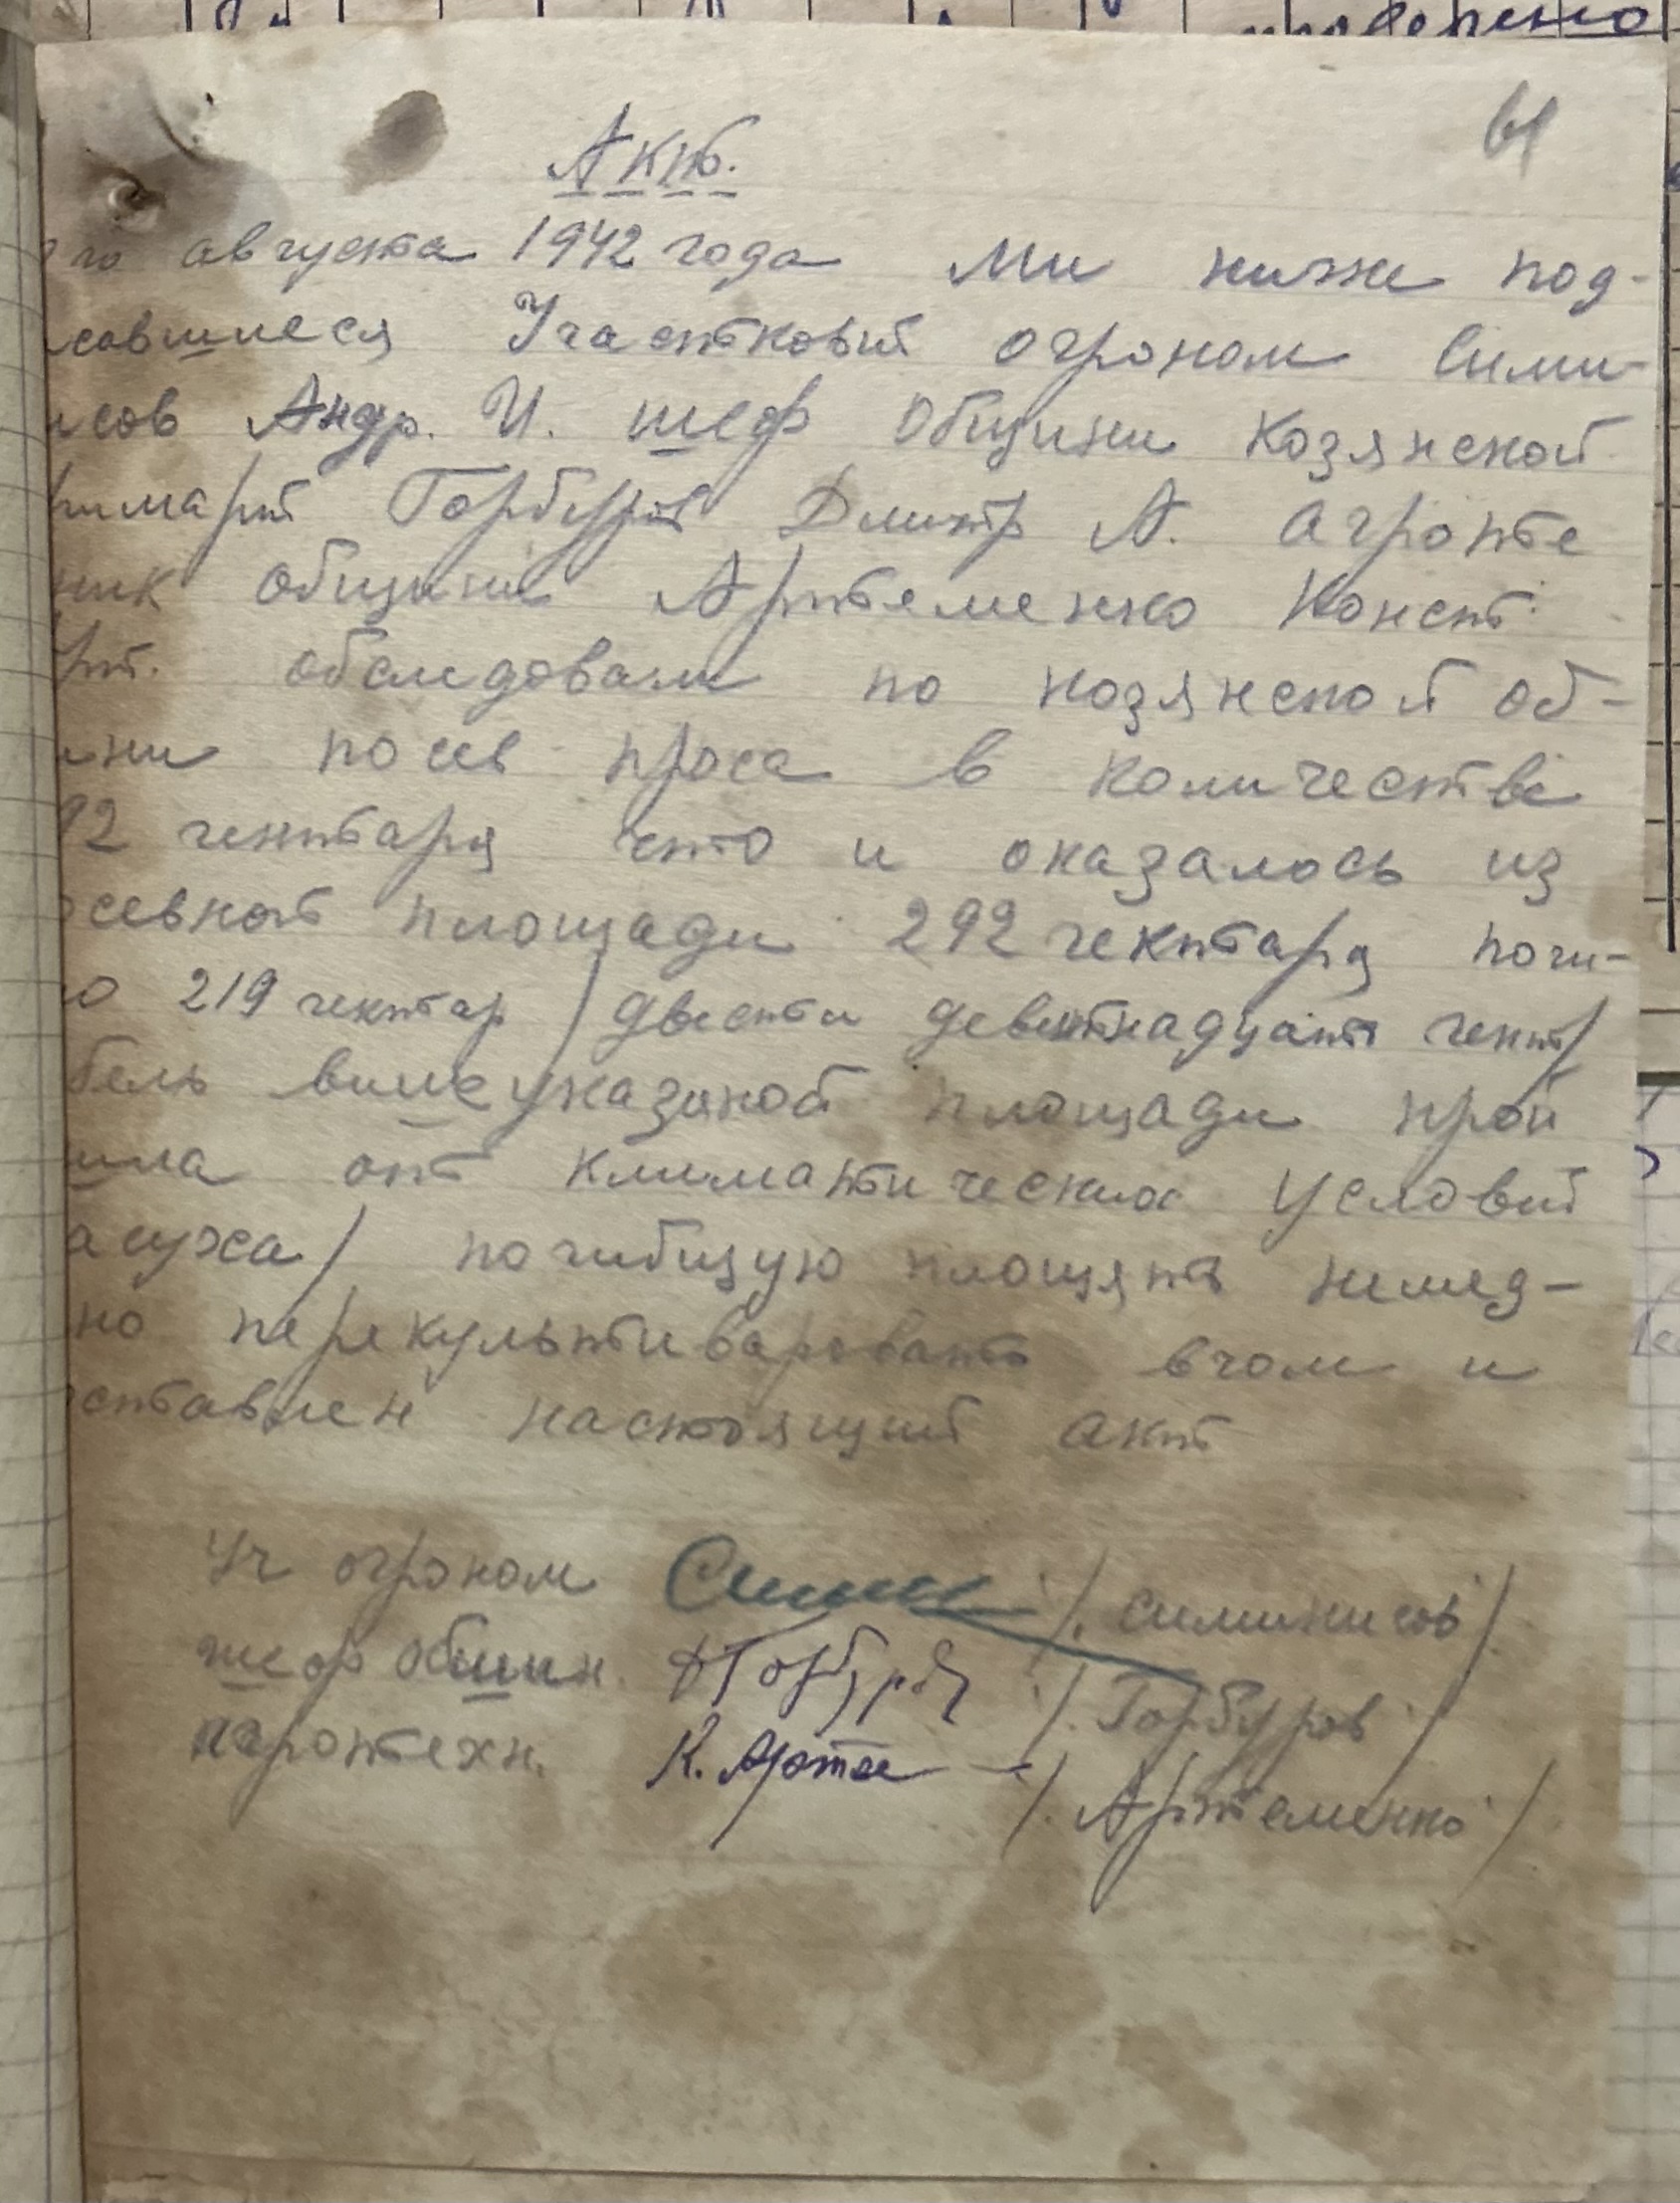 61
Актъ.
го августа 1942 года Ми ниже под-
савшиеся Участковий огроном Сими-
исов Андр. И. шеф Общини Козянской
римарій Горбуров Дмитр А. Агронте
ник общини Артеменко Конст.
обследовали по козянской об-
ини посев проса в количестве
92 гектаря что и оказалось из
севной площади 292 гектаря поги-
о 219 гектар / двести девятнадцать гект/
бель вишеуказаной площади прой
шла от климатических условий
асуха/ погибщую площять немед-
но перекультивировать вчом и
ставлен настоящий акт
Уч огроном / симинисов /
шеф общин. ДГорбуров /. Горбуров /
агротехн. К. Арте /. Артеменко /